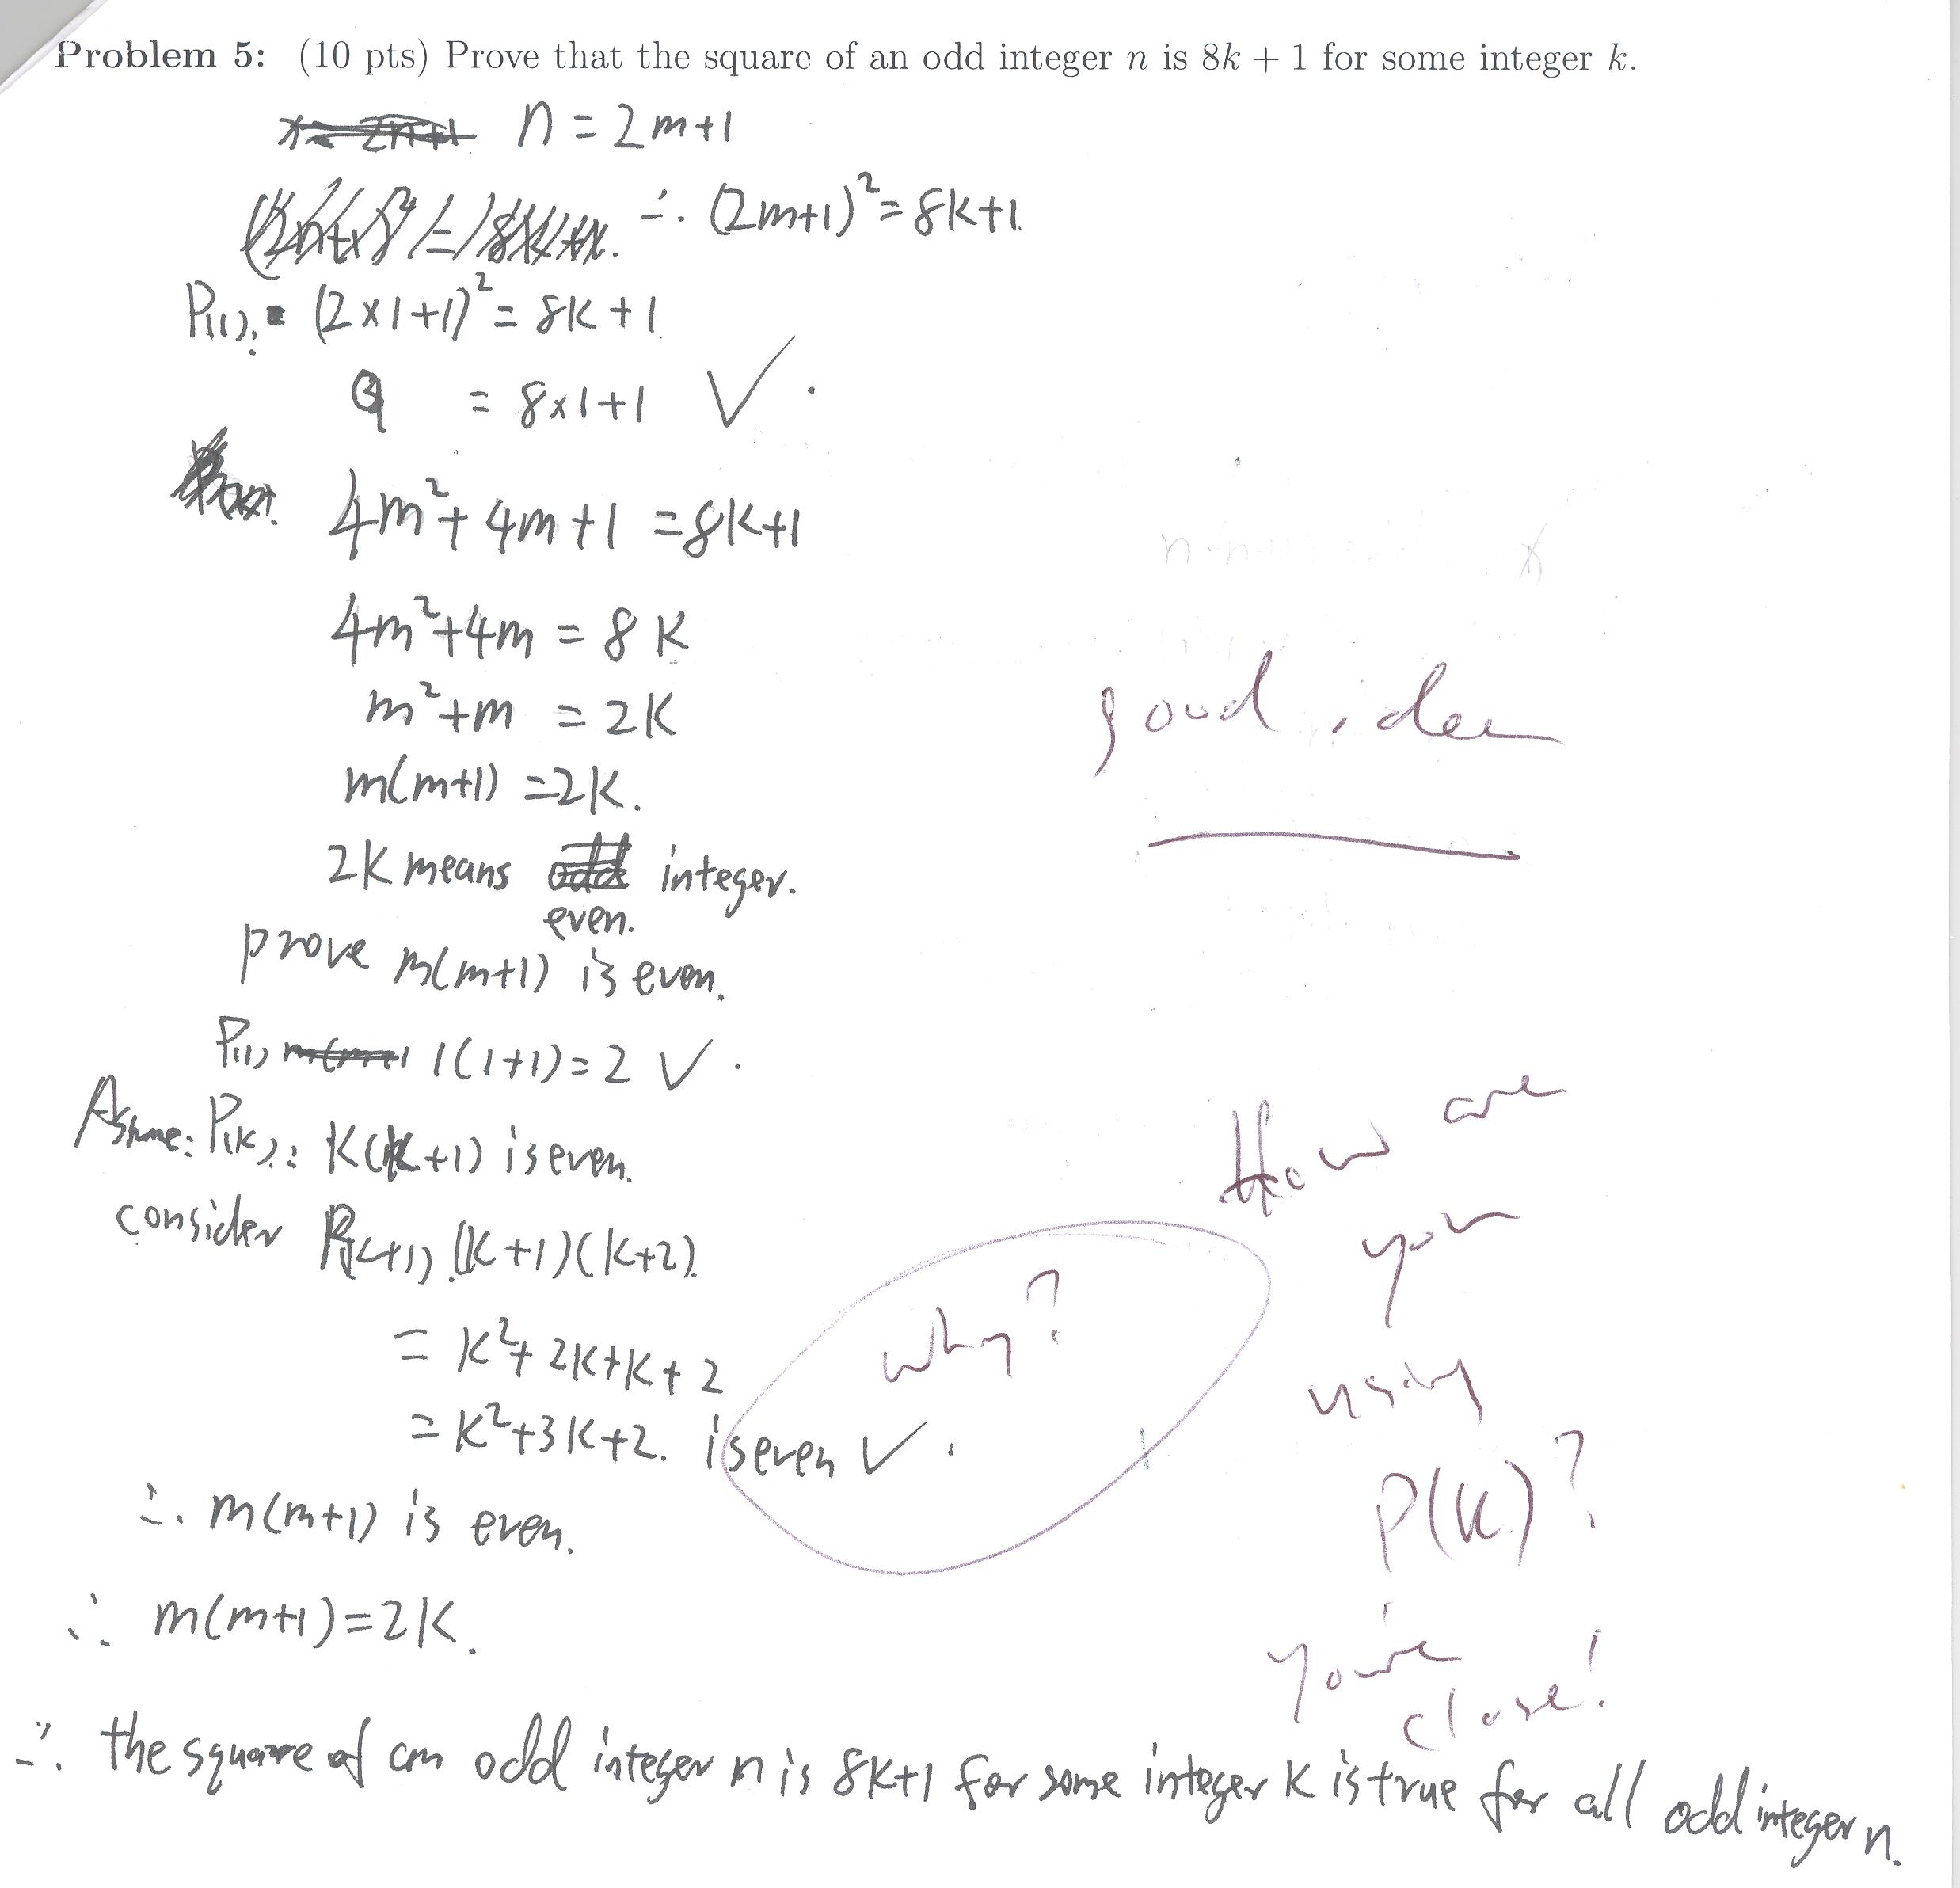 Problem 5: (10 pts) Prove that the square of an odd integer n is 8k + 1 for some integer k.
n = 2m+1
∴ (2m+1)² = 8k+1.
P(1): (2×1+1)² = 8k+1.
9 = 8×1+1 ✓.
4m²+4m+1 = 8k+1
4m²+4m = 8k
m²+m = 2k
good idea
m(m+1) = 2k.
2k means odd integer.
even.
prove m(m+1) is even.
P(1) 1(1+1)=2 ✓.
Assume: P(k): k(k+1) is even.
How are
you
using
P(k)?
consider P(k+1) (k+1)(k+2).
= k²+2k+k+2
why?
= k²+3k+2. is even ✓.
∴ m(m+1) is even.
∴ m(m+1)=2k.
you're
close!
∴ the square of an odd integer n is 8k+1 for some integer k is true for all odd integer n.